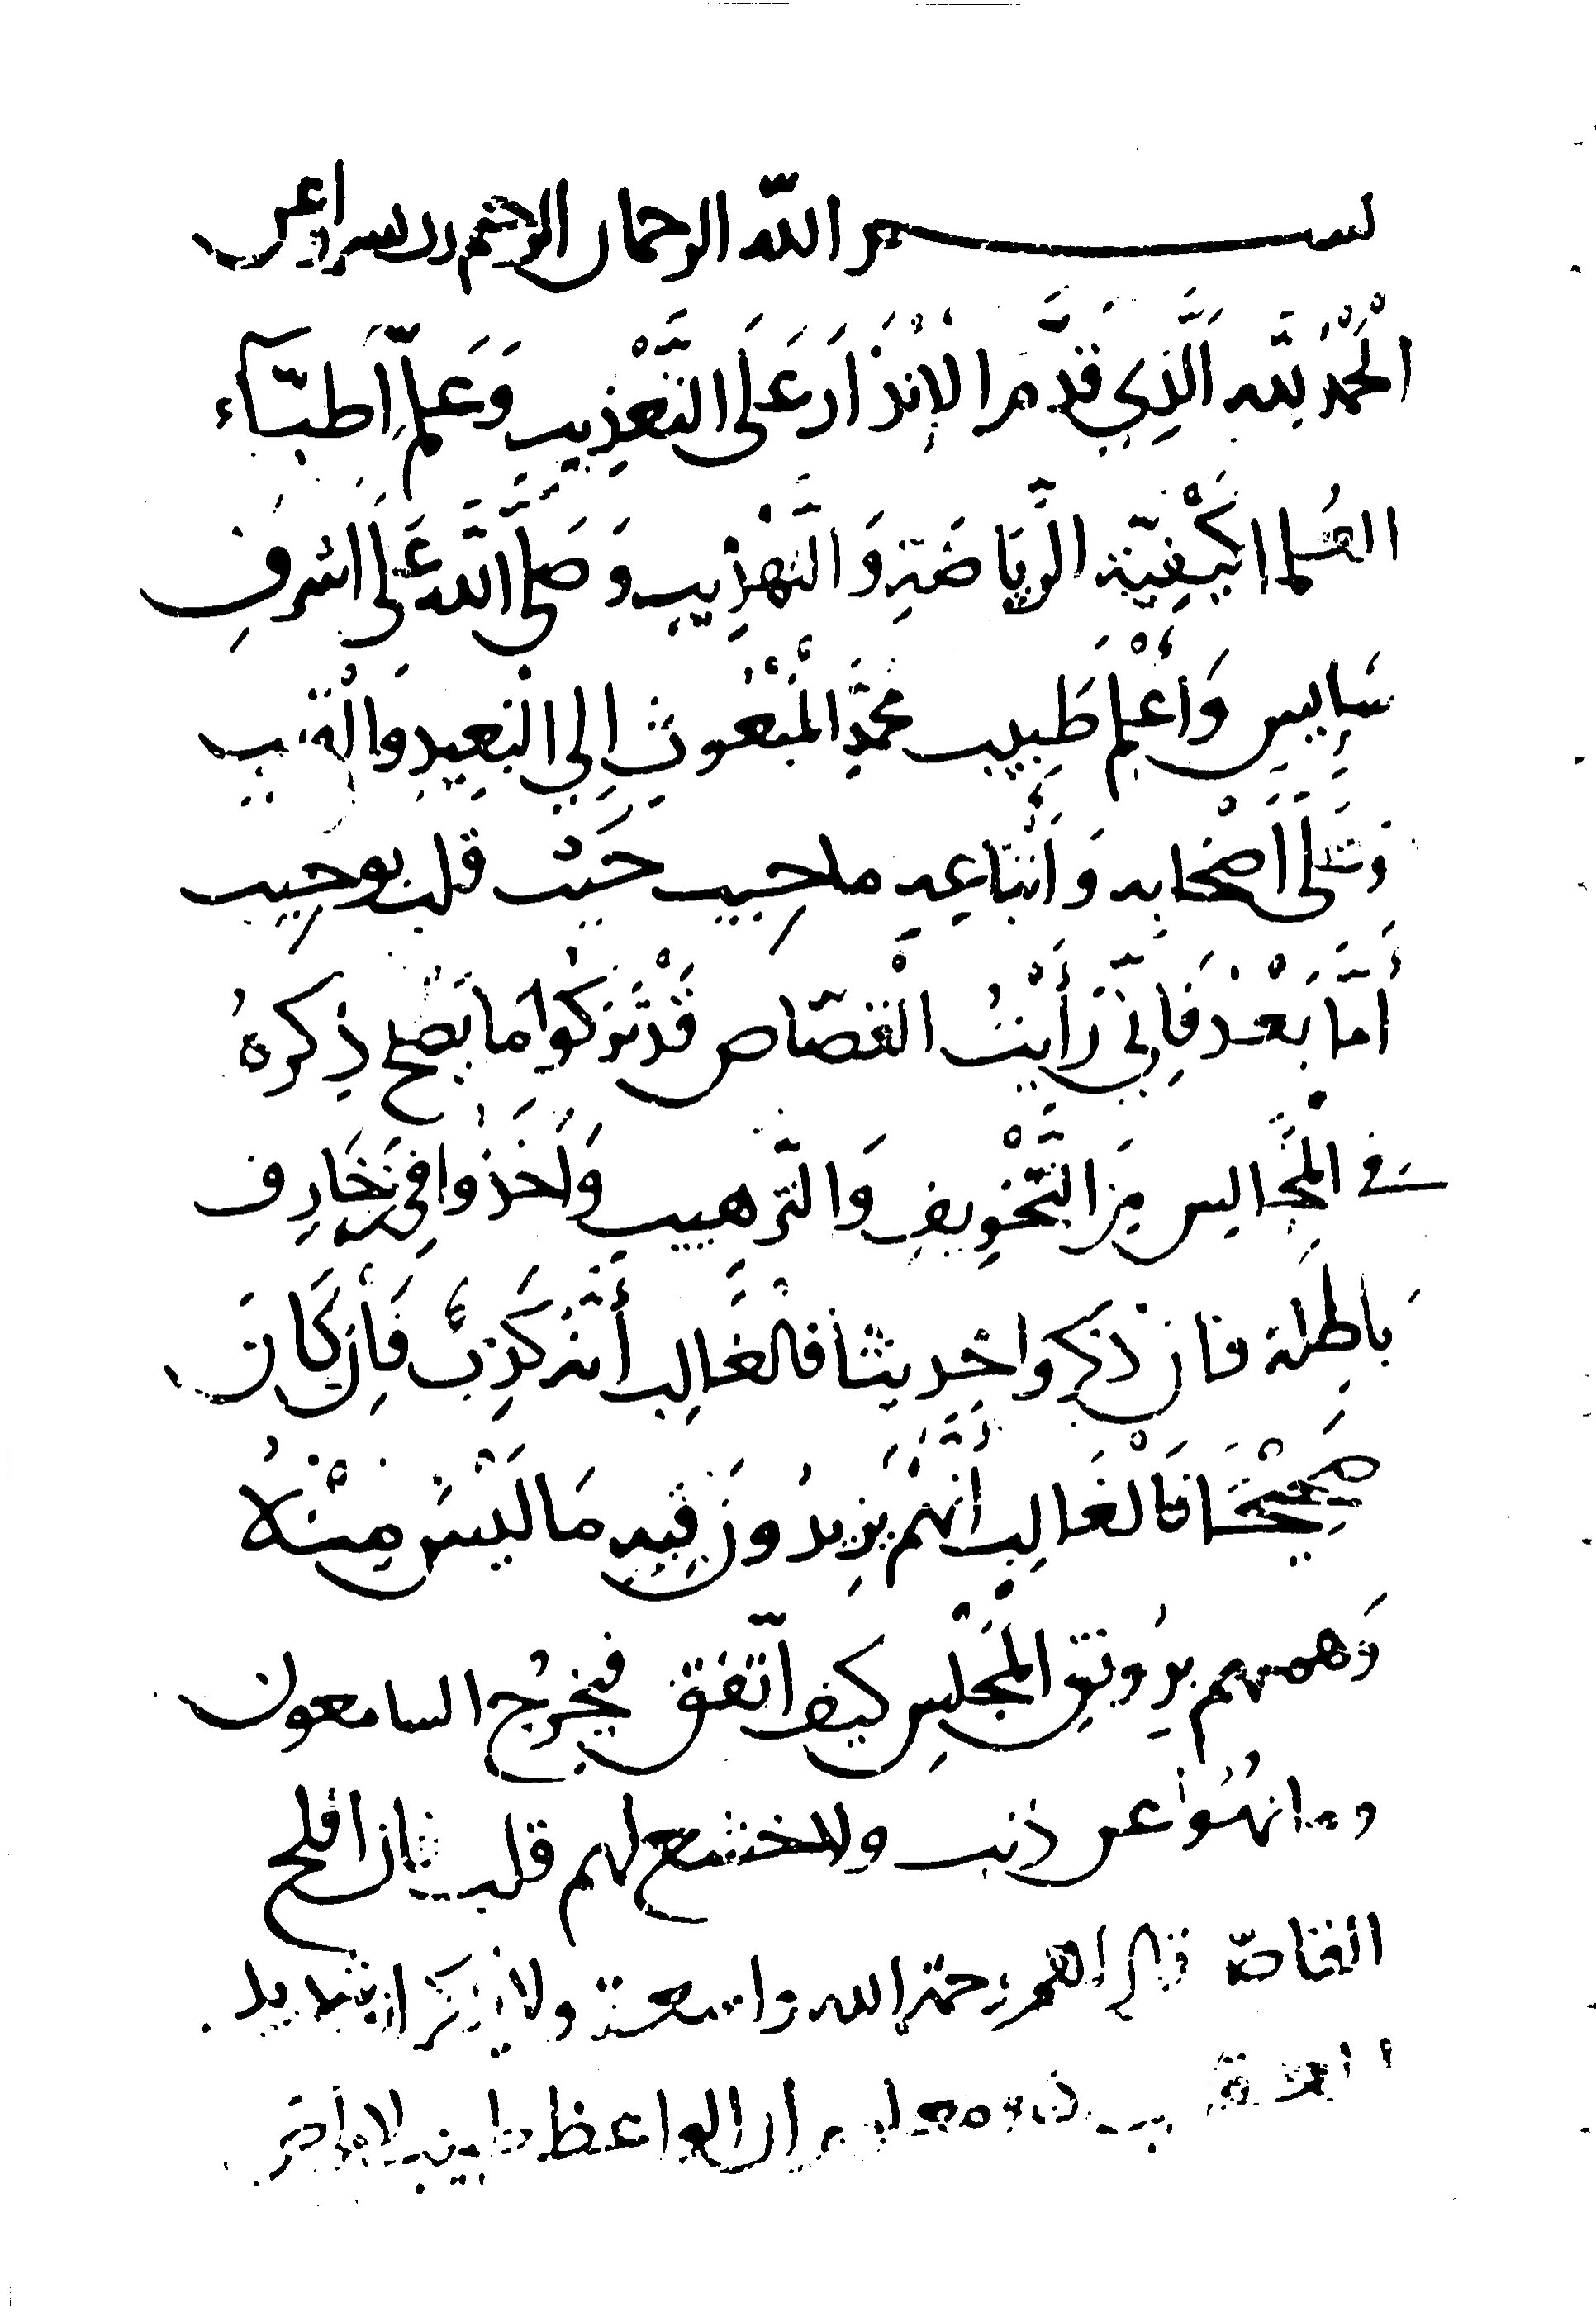 بسم الله الرحمان الرحيم رب يسر وأعن
الْحَمْدُ لِلَّهِ الَّذِي قَدَّمَ الإِنْذَارَ عَلَى التَّعْذِيبِ وَعَلَّمَ أَطِبَّآءَ
العُلما كَيْفِيّة الرِّيَاضَةِ وَالتَّهْذِيبِ وَصَلَّى اللَّه عَلَى اشرفِ
سَايِسٍ وَأَعْلَمِ طَبِيبٍ مُحَمَّدٍ الْمَبْعُوثِ إِلِى الْبَعِيدِ وَالْقَرِيب
وَعَلَى أَصْحَابِهِ وَأَتْبَاعِهِ ما حبيب حَيث قلب بوجِيب
أَمَّا بَعْدُ فَإِنِّي رَأَيْتُ الْقصّاص قَدْ تَرَكُوا مَا يَصْلُح ذِكرهُ
في الْمَجَالِسِ مِنَ التَّخْوِيفِ وَالتَّرْهِيبِ وَأَخَذُوا فِي زَخَارِف
بَاطِلة فان ذكروا حَديثا فالغَالِب أَنَّهُ كَذِبٌ فَإِنْ كَانَ
صَحِيْحًا فَالْغَالِب أَنَّهُمْ يَزِيدُونَ فِيهِ مَا لَيْسَ مِنْهُ
وَهمهم برَونقِ الْمَجْلِسِ كيفَ اتّفق فيخرُج السامعون
وما انهُوا عن ذنب ولا خشع لهم قلب فان افلح
القاصّ قال لهم رحمة الله واسعة ولا يذكر شديد
العقاب ومعلوم أن الواعظ طبيب الامراض